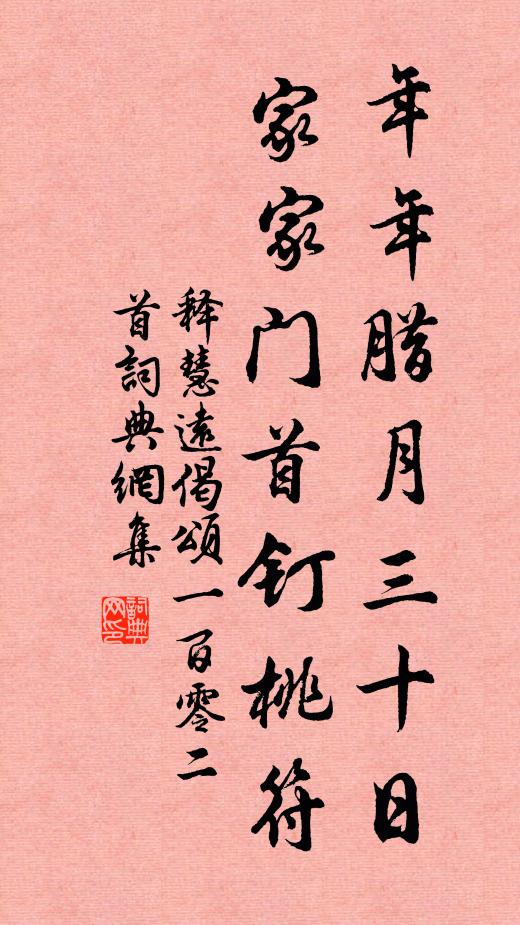 年年腊月三十日
家家门首钉桃符
释慧遠偈頌一百零二
首詞典網集
詞典
网印